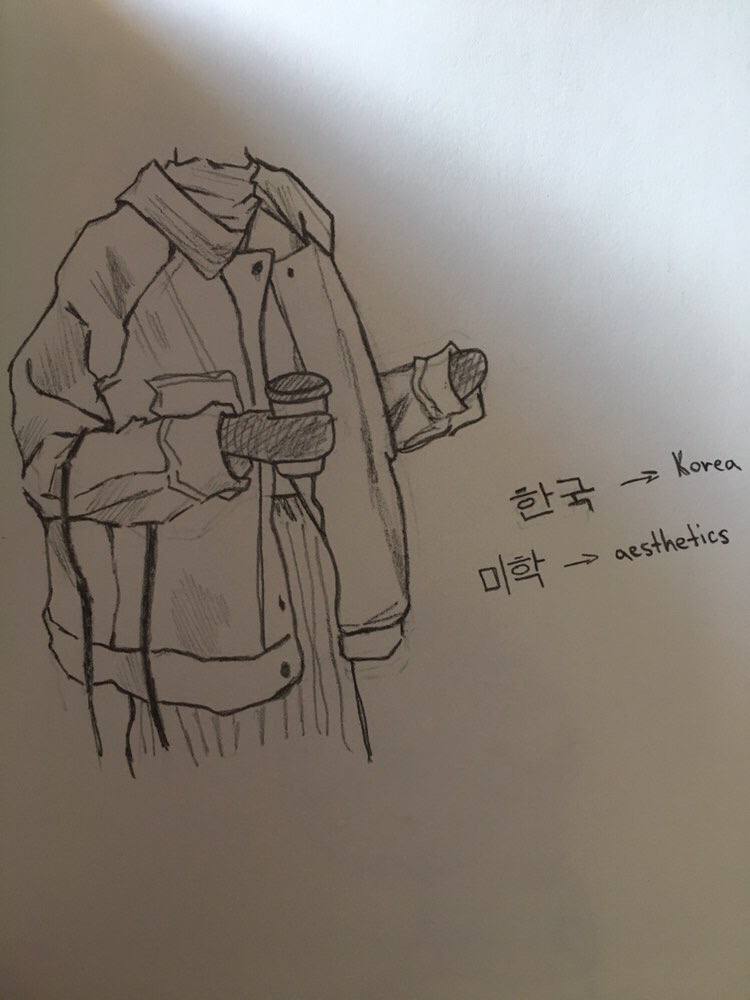 한국 → Korea
미학 → aesthetics